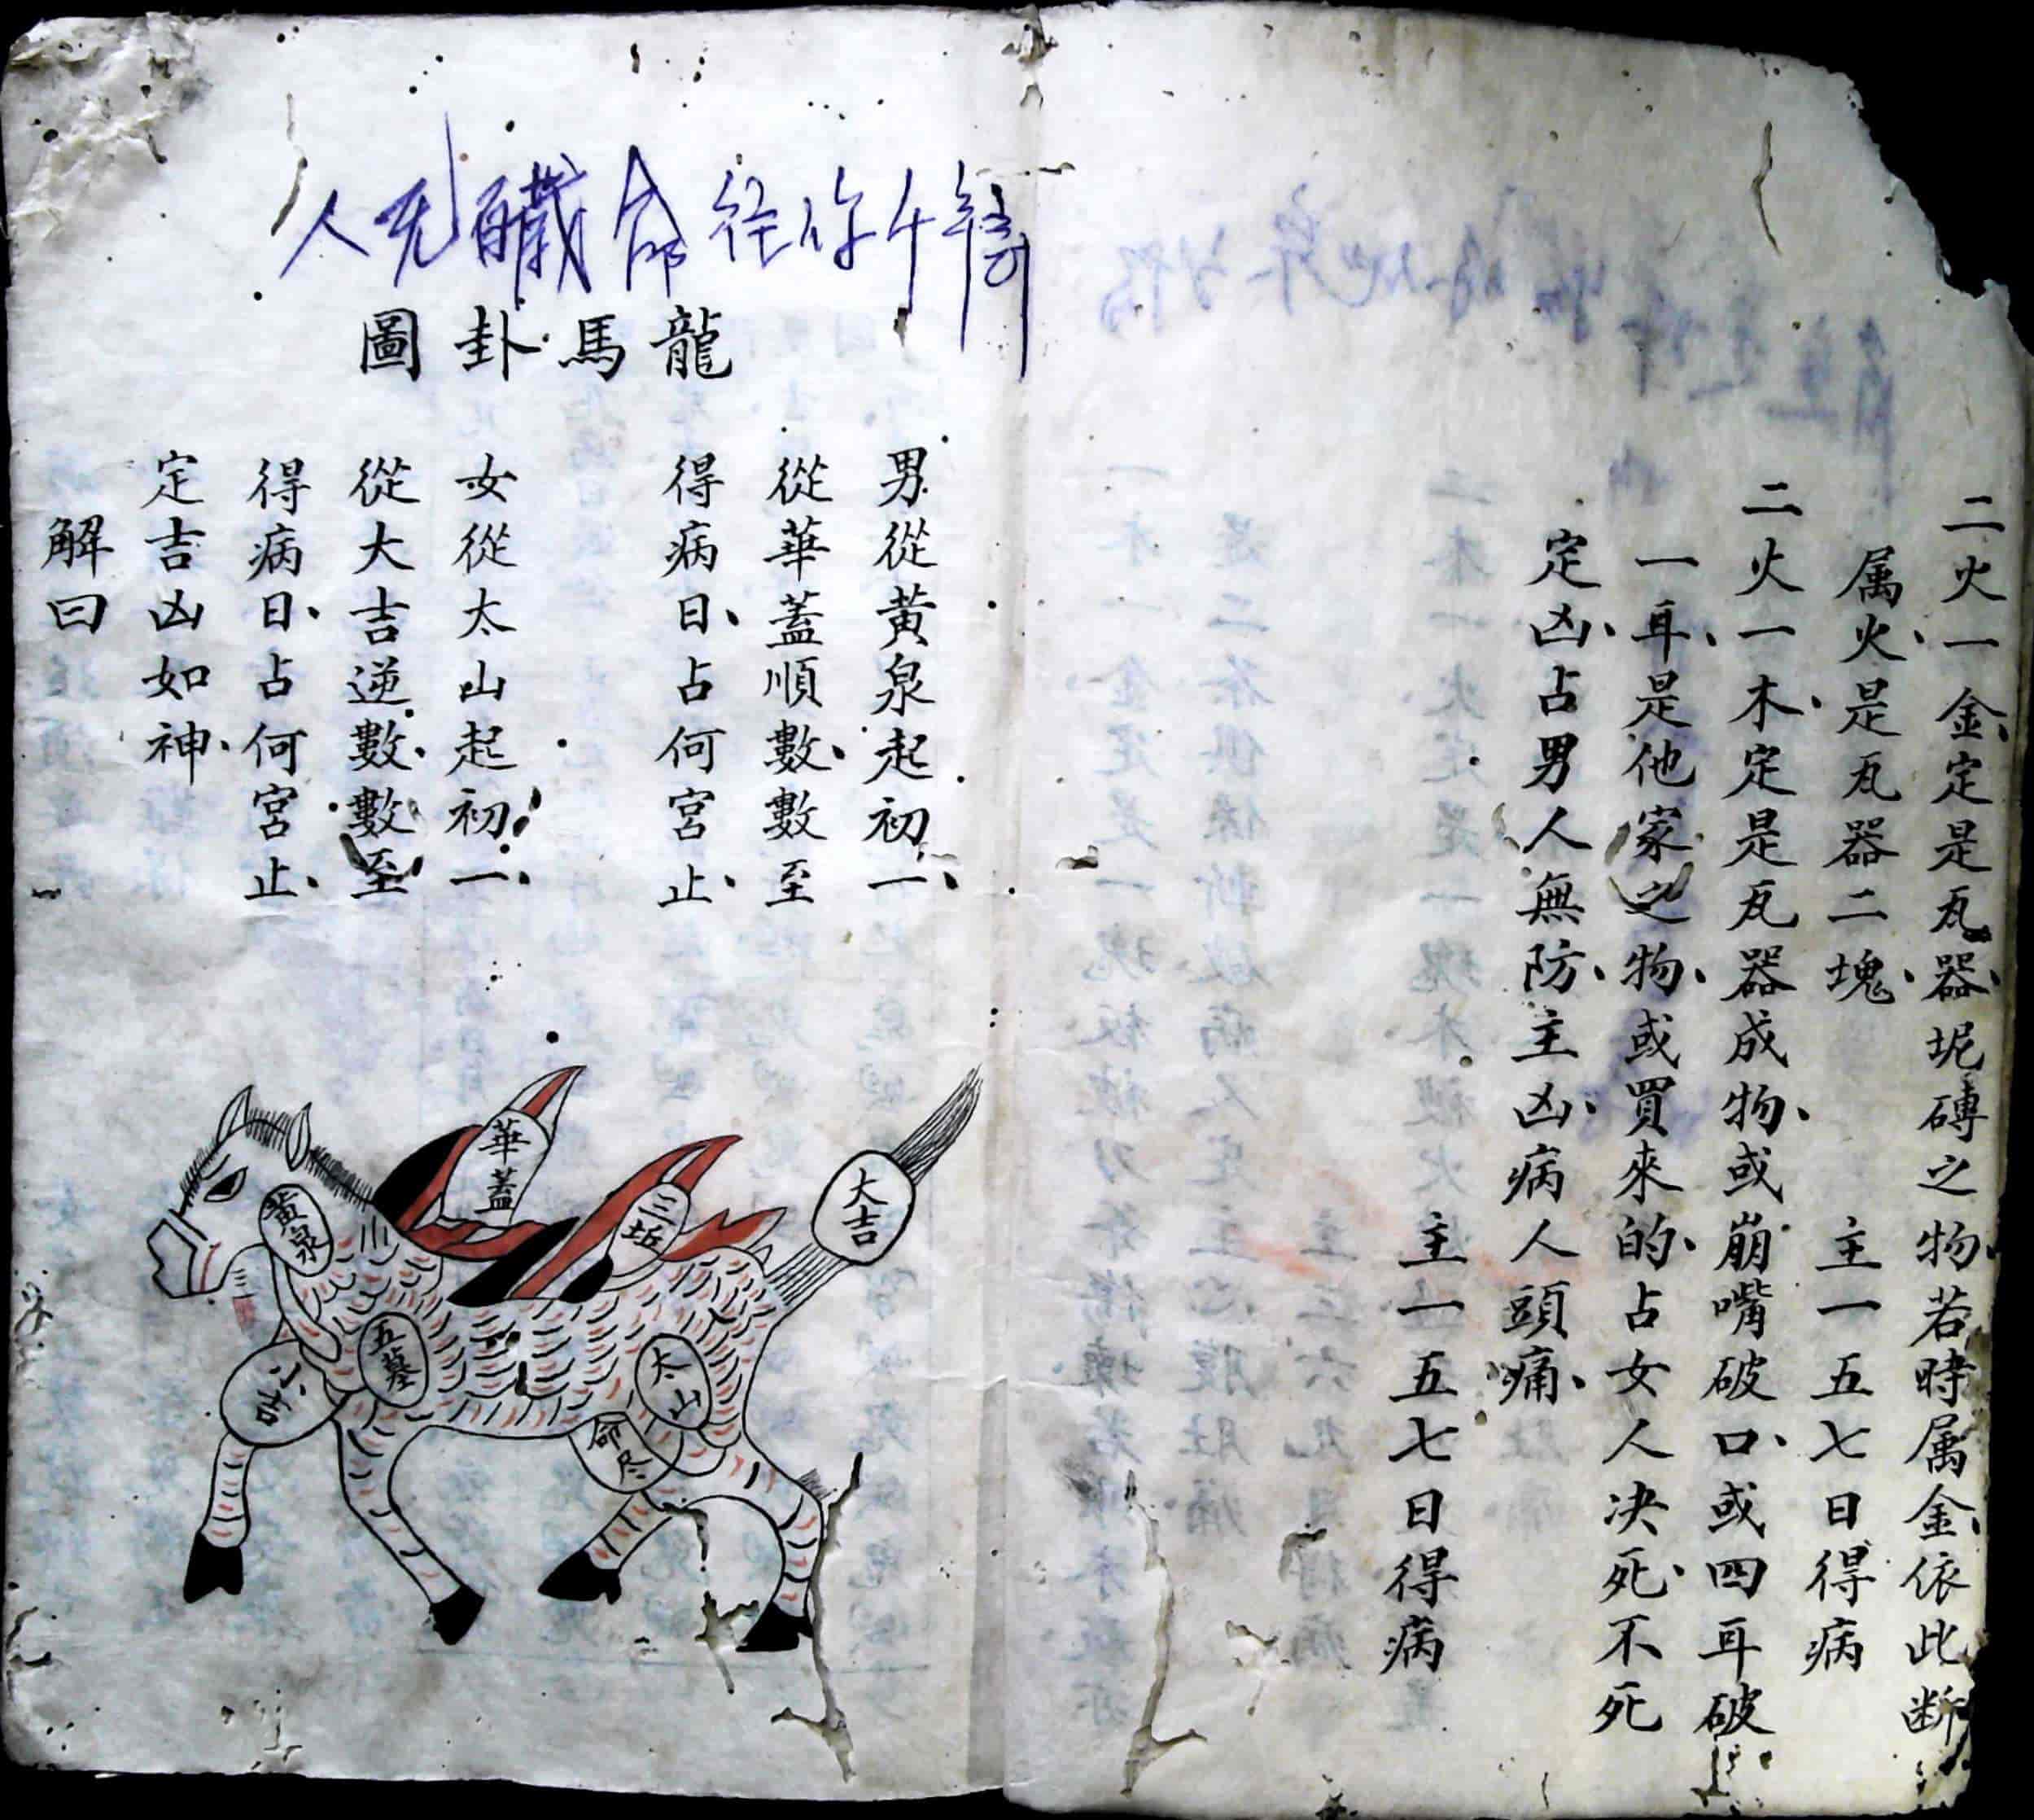 二火一金、定是瓦器、坭磚之物、若時属金、依此断
属火、是瓦器二塊、主一五七日得病
二火一木、定是瓦器成物、或崩嘴破口、或四耳破
一耳、是他家之物、或買來的、占女人决死、不死
定凶、占男人無防、主凶、病人頭痛、
主一五七日得病
龍馬卦圖
男從黃泉起初一、
從華蓋順數、數至
得病日、占何宮止、
女從太山起初一、
從大吉逆數、數至
得病日、占何宮止、
定吉凶如神、
解曰
華蓋
三坵
大吉
黃泉
五墓
太山
小吉
命尽